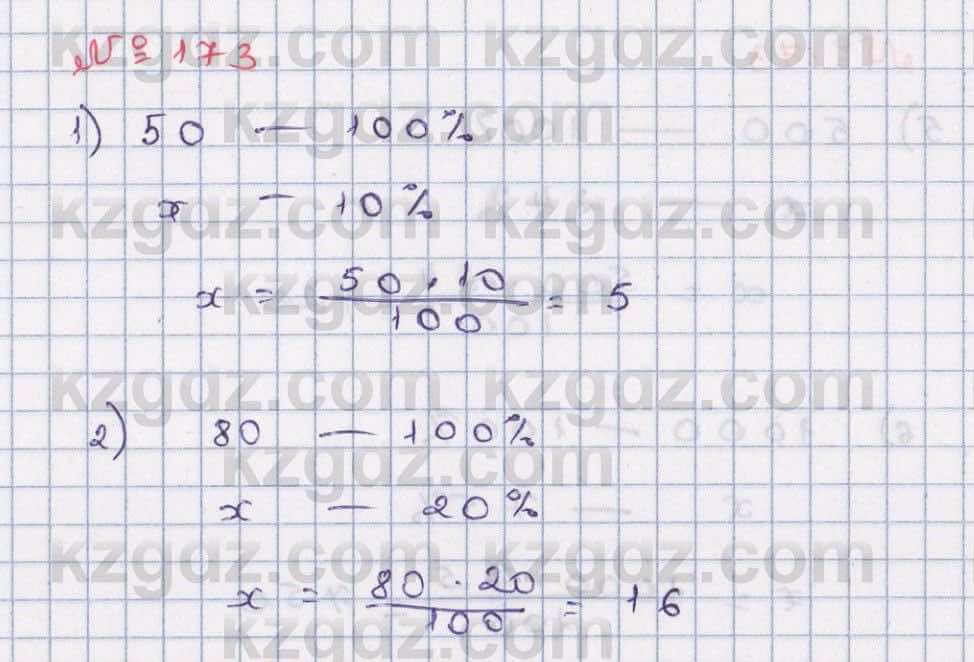 № 173
1) 50 — 100%
x — 10%
x = 50 · 10 / 100 = 5
2) 80 — 100%
x — 20%
x = 80 · 20 / 100 = 16
kzgdz.com kzgdz.com
kzgdz.com
kzgdz.com kzgdz.com
kzgdz.com
kzgdz.com kzgdz.com
kzgdz.com
kzgdz.com kzgdz.com
kzgdz.com